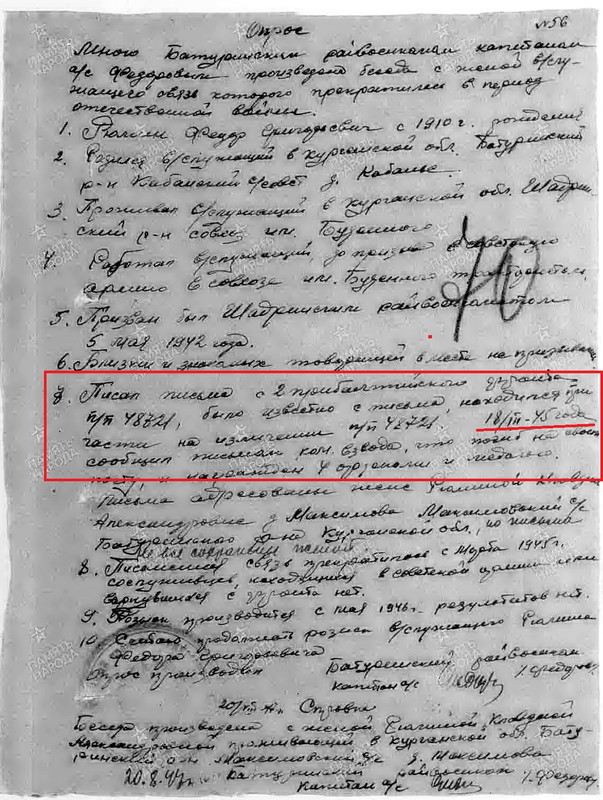 №56
Опрос
Мною Батуринским райвоенкомом капитаном
а/с Федоровым произведена беседа с женой в/слу-
жащего связь которого прекратилась в период
отечественной войны.
1. Федор Григорьевич с 1910 г. рождения
2. Родился в/служащий в Курганской обл. Батуринский
р-н с/совет д.
3. Проживал в/служащий в Курганской обл. Шадрин-
ский р-н совхоз им. Буденного
4. Работал в/служащий до призыва в советскую
армию в совхозе им. Буденного
70
5. Призван был Шадринским райвоенкоматом
5 мая 1942 года.
6. Близких и знакомых товарищей вместе не призывали
7. Писал письма с 2 прибалтийского фронта
п/п 48721, было известно с письма, находился при
части на излечении п/п 48721. 18/III-45 года
сообщил письмом ком. взвода, что погиб на своем
посту, и награжден 4 орденами и медалью.
Письма адресованы жене
Александровне д. Максимова Максимовский с/с
Батуринского р-на Курганской обл., но письма
не сохранились женой.
8. Письменная связь прекратилась с марта 1945 г.
сослуживцев, находящихся в советской армии или
вернувшихся с фронта нет.
9. Розыск производится с мая 1946 г. результатов нет.
10. продолжать розыск в/служащего
Федора Григорьевича
Опрос производил Батуринский райвоенком
капитан а/с /Федоров/
Справка
Беседа произведена с женой Клавдией
Александровной проживающей в Курганской обл. Бату-
ринский р-н Максимовский с/с д. Максимова
20.8.47 г. Батуринский райвоенком
Капитан а/с /Федоров/
ПАМЯТЬ НАРОДА